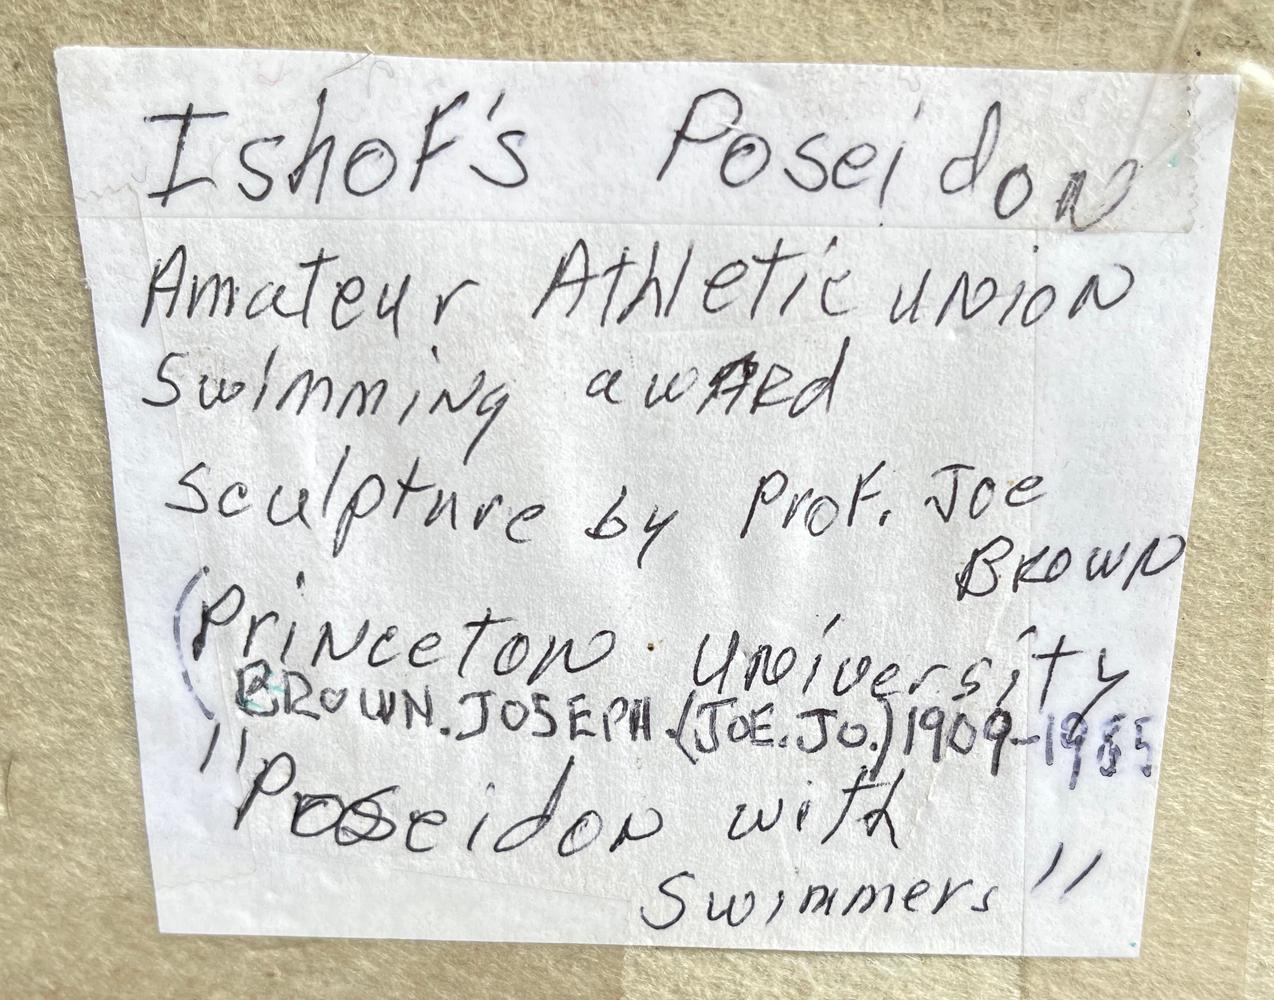 Ishof's Poseidon
Amateur Athletic union
Swimming award
sculpture by Prof. Joe
Brown
(Princeton University
BROWN. JOSEPH. (JOE. JO.) 1909-1985
"Poseidon with
Swimmers"